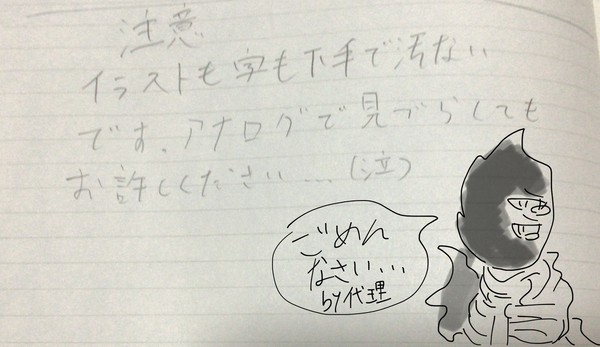 注意
イラストも字も下手で汚ない
です。アナログで見づらくても
お許しください....(泣)
ごめん
なさい...
by代理